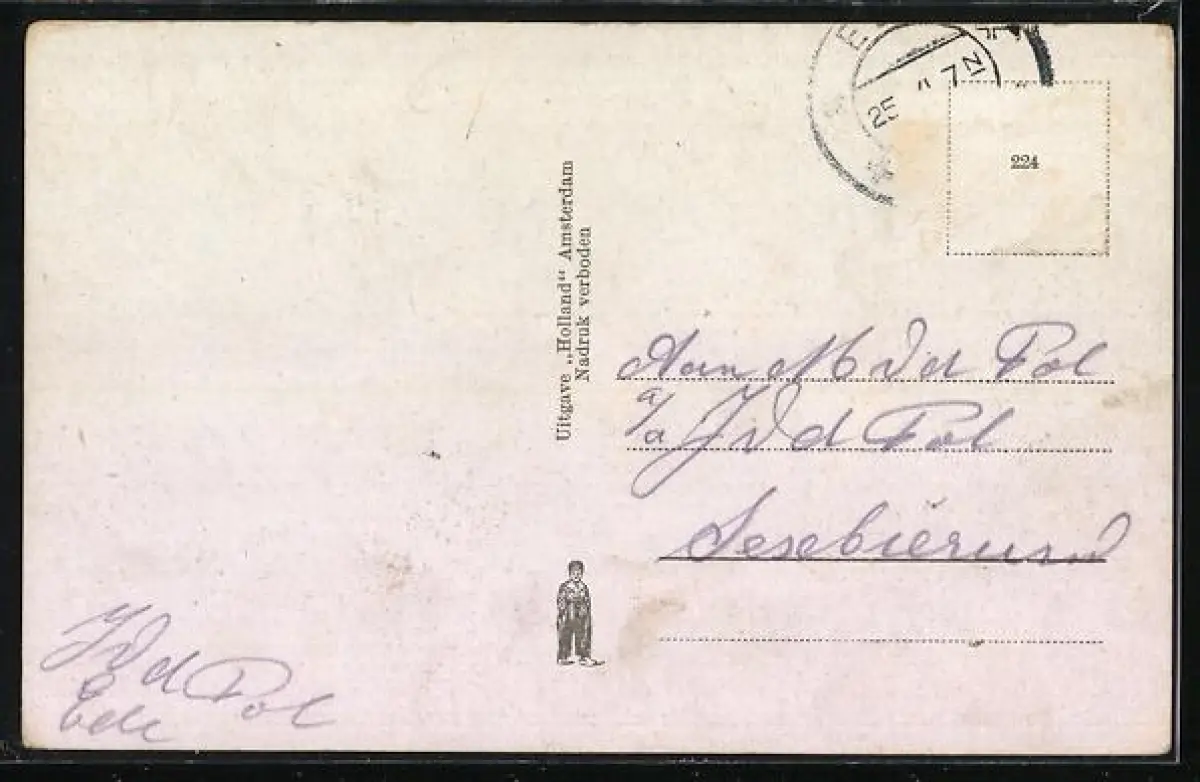 E
25 4 7N
224
Uitgave „Holland“ Amsterdam
Nadruk verboden
Aan M V d Pol
a/a J V d Pol
J V d Pol
Ede